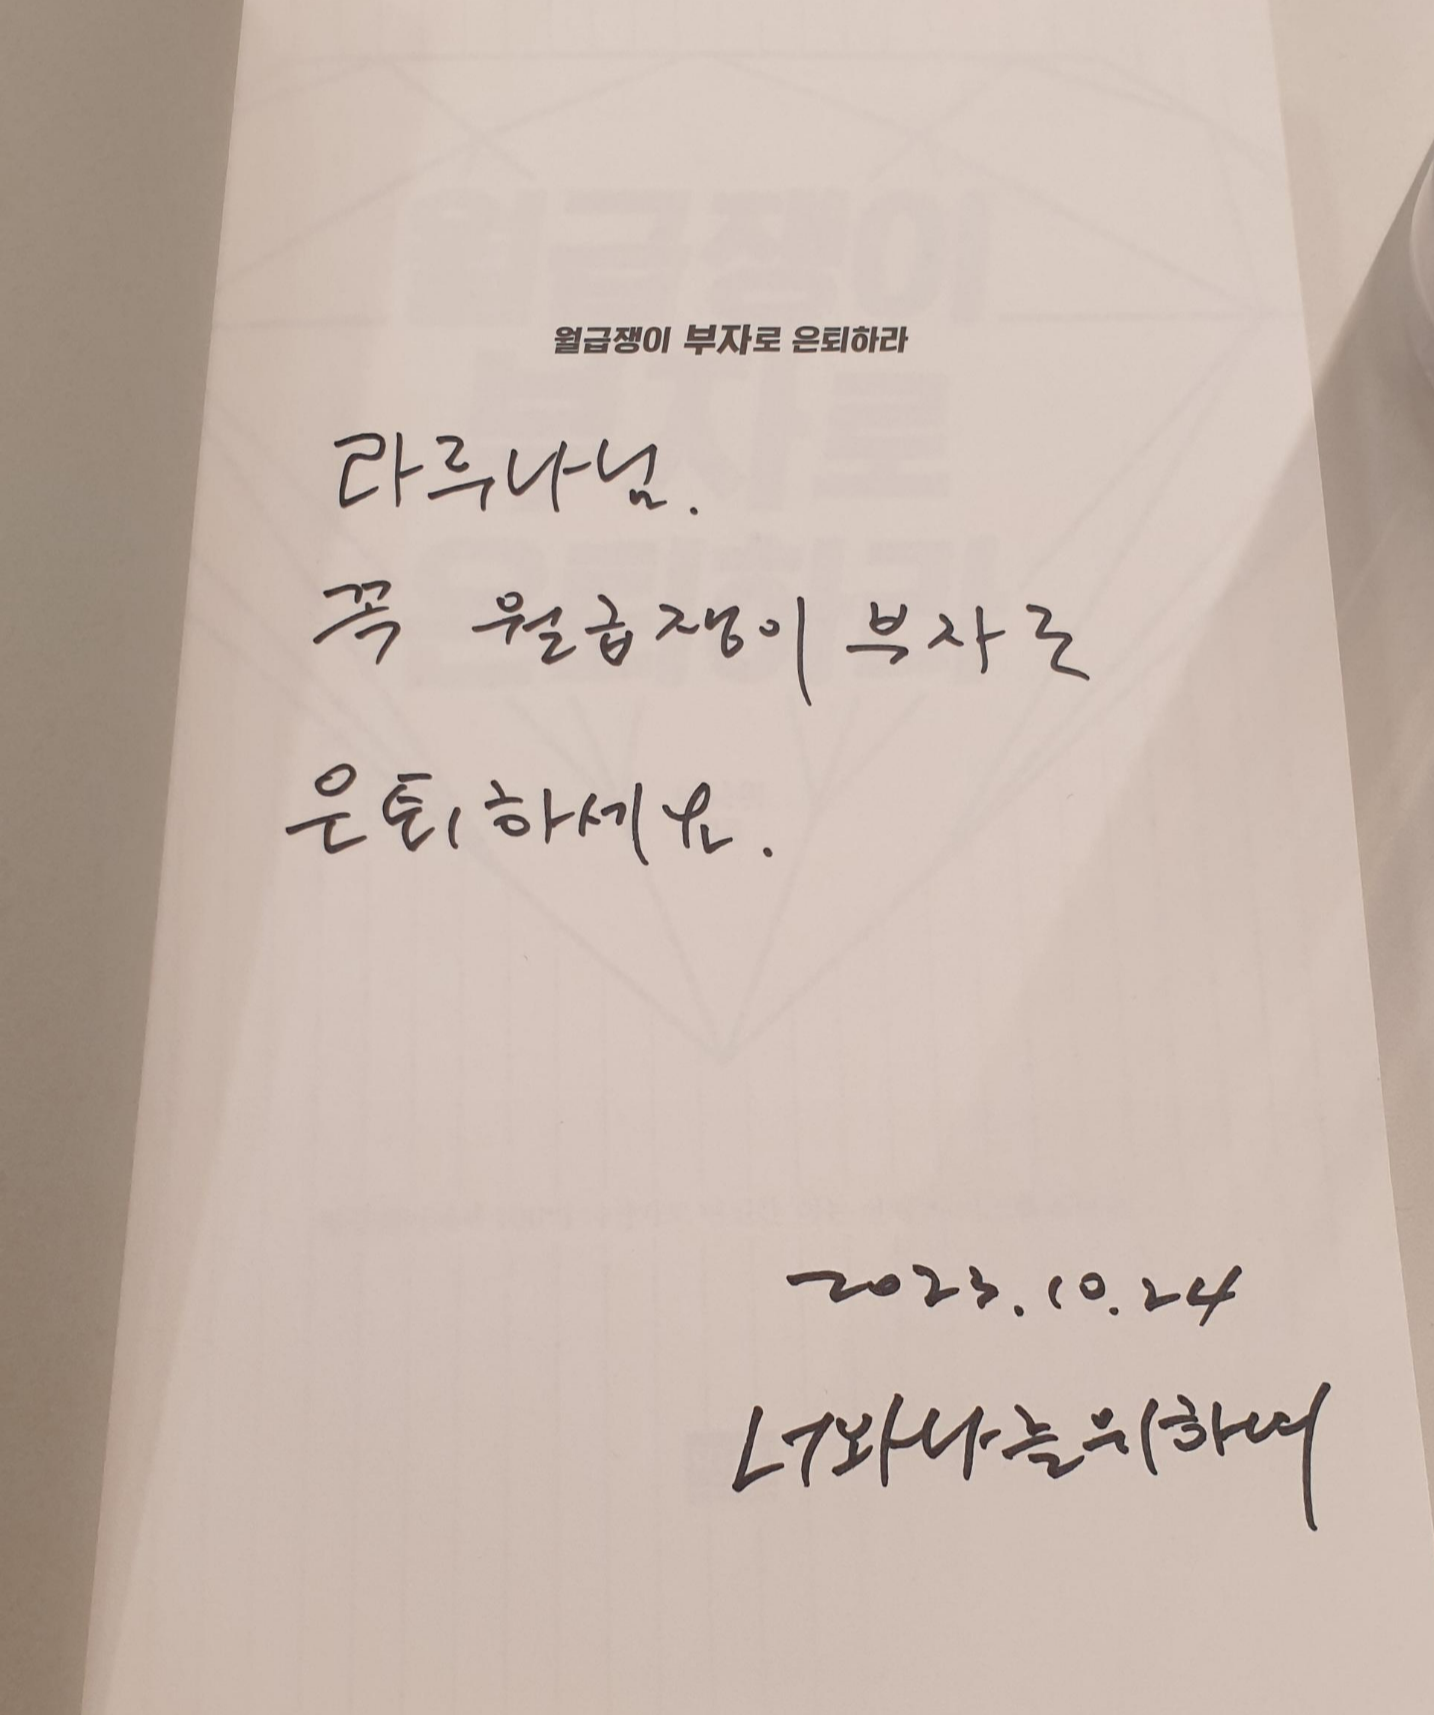 월급쟁이 부자로 은퇴하라
라루나님.
꼭 월급쟁이 부자로
은퇴하세요.
2023.10.24
너와나를위하여